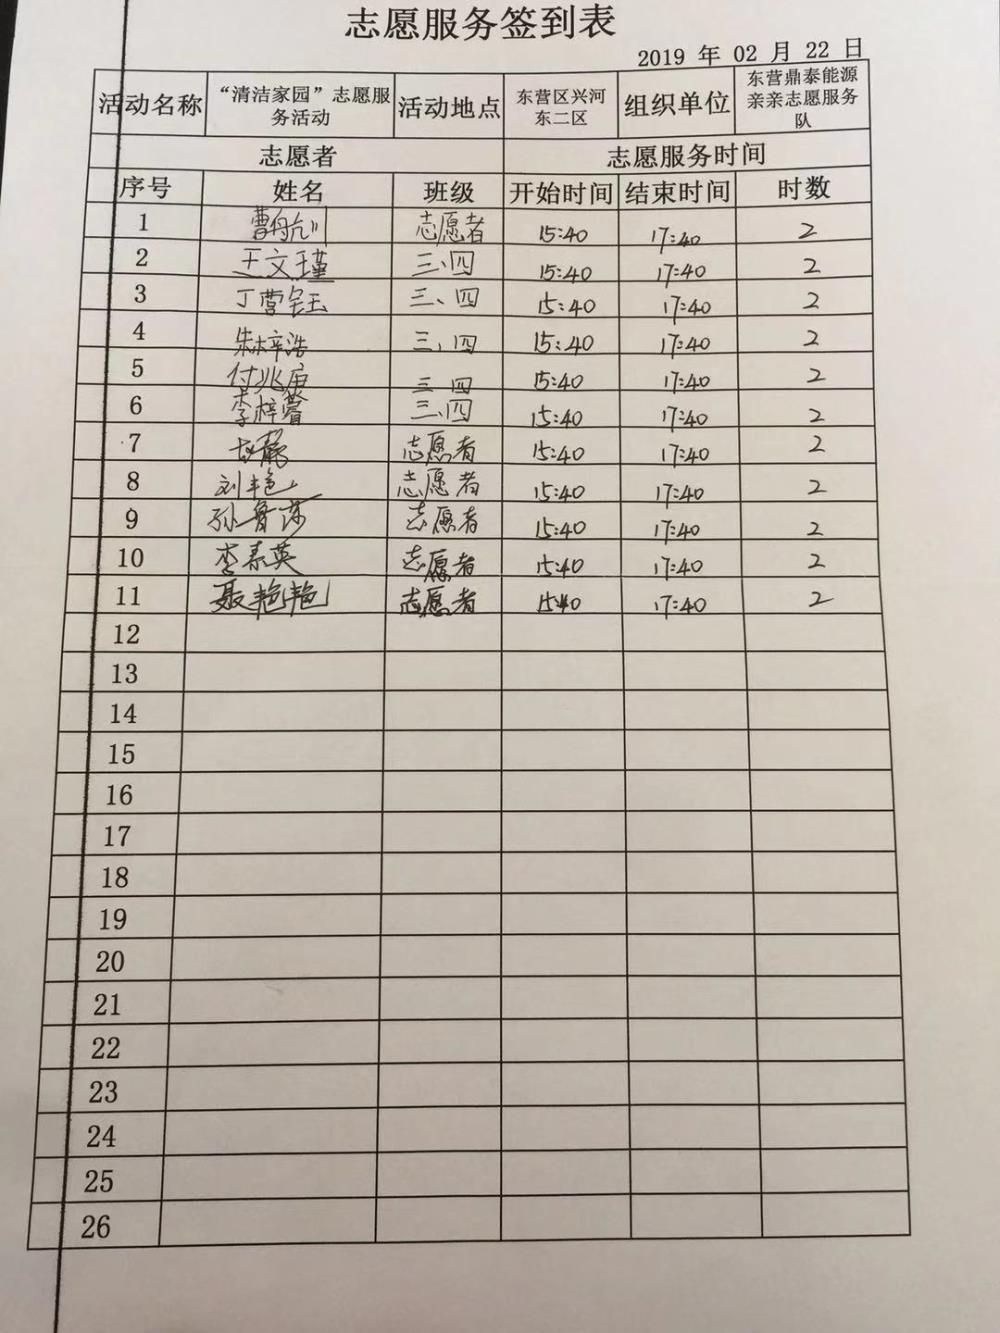 志愿服务签到表
2019 年 02 月 22 日
活动名称 “清洁家园”志愿服务活动 活动地点 东营区兴河东二区 组织单位 东营鼎泰能源亲亲志愿服务队
志愿者 志愿服务时间
序号 姓名 班级 开始时间 结束时间 时数
1 曹舟航川 志愿者 15:40 17:40 2
2 王文瑾 三、四 15:40 17:40 2
3 丁营钰 三、四 15:40 17:40 2
4 朱梓浩 三、四 15:40 17:40 2
5 付兆庙 三 四 15:40 17:40 2
6 李梓睿 三、四 15:40 17:40 2
7 志愿者 15:40 17:40 2
8 刘艳 志愿者 15:40 17:40 2
9 孙鲁莎 志愿者 15:40 17:40 2
10 李素英 志愿者 15:40 17:40 2
11 聂艳艳 志愿者 15:40 17:40 2
12
13
14
15
16
17
18
19
20
21
22
23
24
25
26